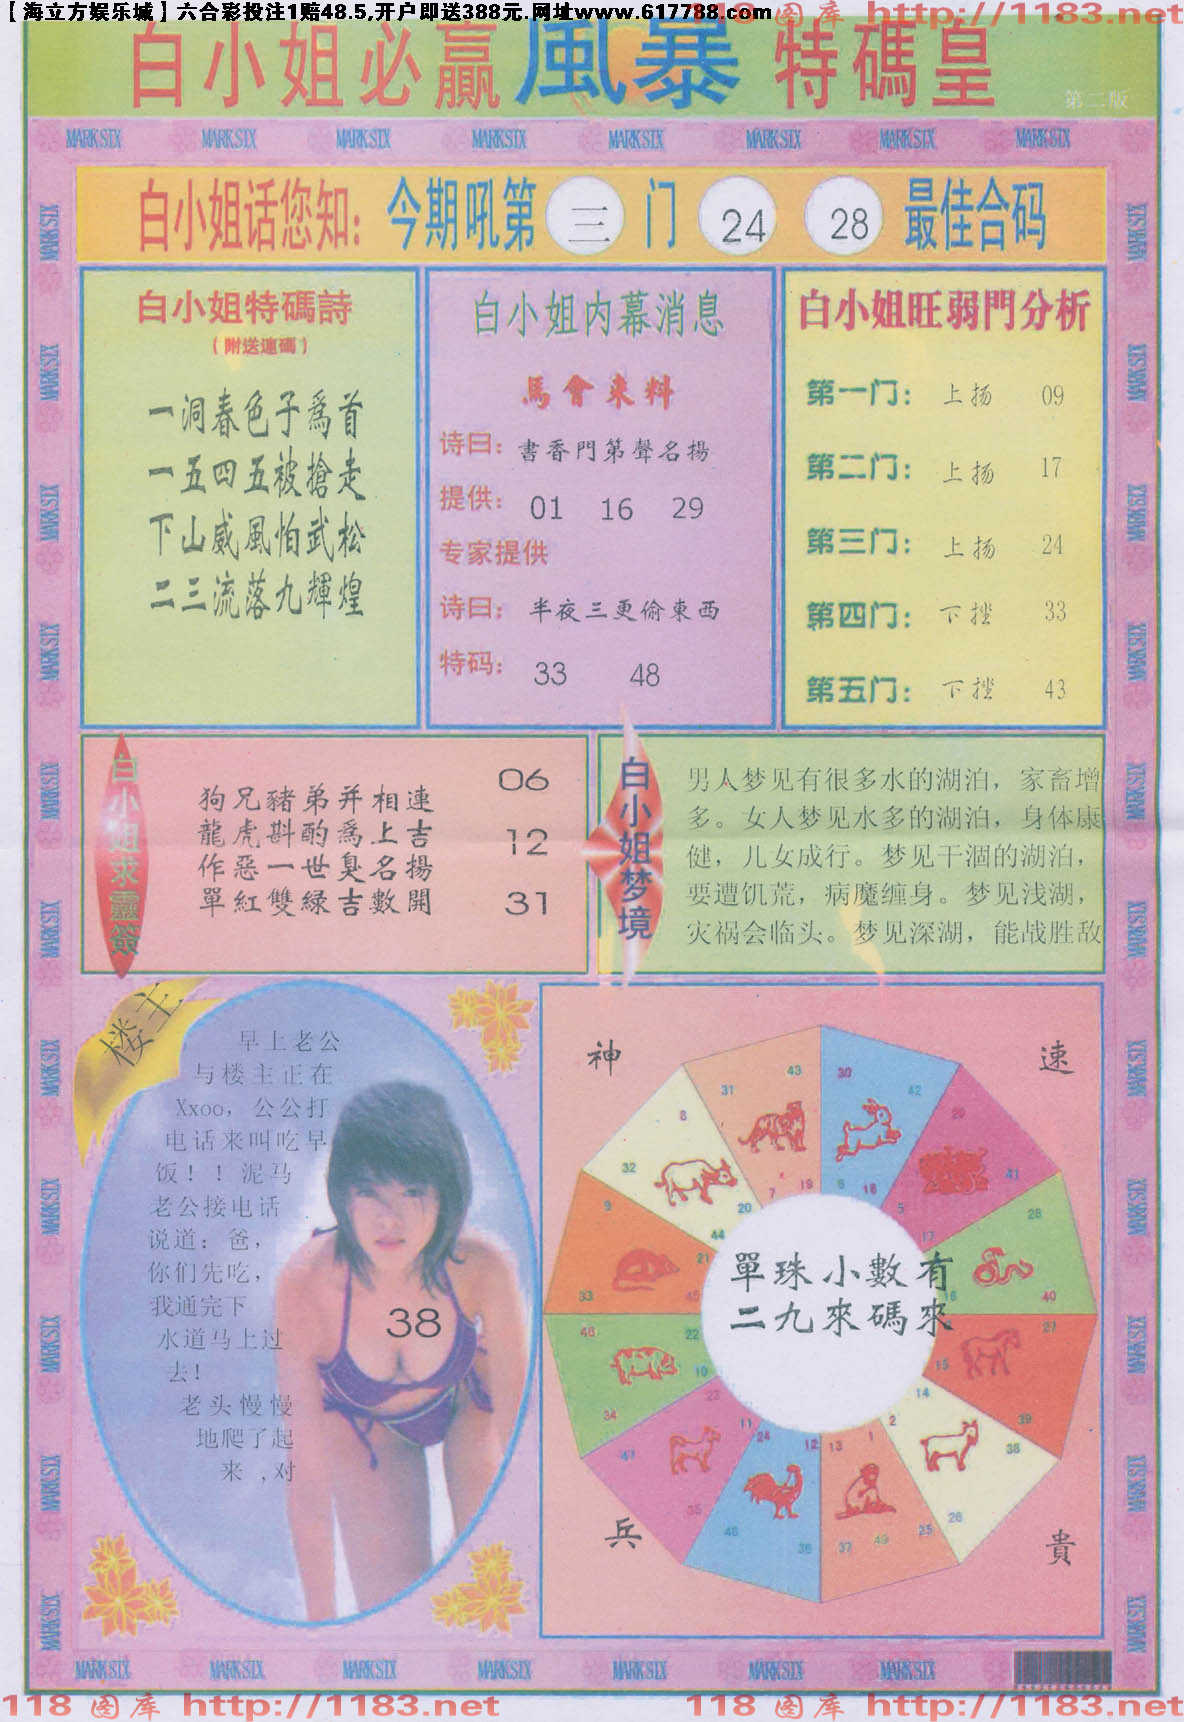 【海立方娱乐城】六合彩投注1赔48.5,开户即送388元.网址www.617788.com
118 图库 http://1183.net
白小姐必赢風暴特碼皇
第二版
MARK SIX MARK SIX MARK SIX MARK SIX MARK SIX MARK SIX MARK SIX MARK SIX
白小姐话您知：今期吼第 三 门 24 28 最佳合码
白小姐特碼詩
（附送連碼）
一洞春色子爲首
一五四五被搶走
下山威風怕武松
二三流落九輝煌
白小姐内幕消息
馬會來料
诗曰：書香門第聲名揚
提供：01 16 29
专家提供
诗曰：半夜三更偷東西
特码：33 48
白小姐旺弱門分析
第一门：上扬 09
第二门：上扬 17
第三门：上扬 24
第四门：下挫 33
第五门：下挫 43
白小姐求靈簽
狗兄豬弟并相連
龍虎斟酌爲上吉
作惡一世臭名揚
單紅雙緑吉數開
06
12
31
白小姐梦境
男人梦见有很多水的湖泊，家畜增
多。女人梦见水多的湖泊，身体康
健，儿女成行。梦见干涸的湖泊，
要遭饥荒，病魔缠身。梦见浅湖，
灾祸会临头。梦见深湖，能战胜敌
楼主
早上老公
与楼主正在
Xxoo，公公打
电话来叫吃早
饭！！泥马
老公接电话
说道：爸，
你们先吃，
我通完下
水道马上过
去！
老头慢慢
地爬了起
来 ,对
38
神
速
兵
貴
單珠小數有
二九來碼來
31 43 7 19
30 42 6 18
29 41 5 17
28 40 16
27 39 15
38 26 14 2
1 13 25 37 49
12 24 36 48
11 23 35 47
46 34 22 10
9 33 21 45
8 32 20 44
MARK SIX MARK SIX MARK SIX MARK SIX MARK SIX MARK SIX MARK SIX
118 图库 http://1183.net
118 图库 http://1183.net